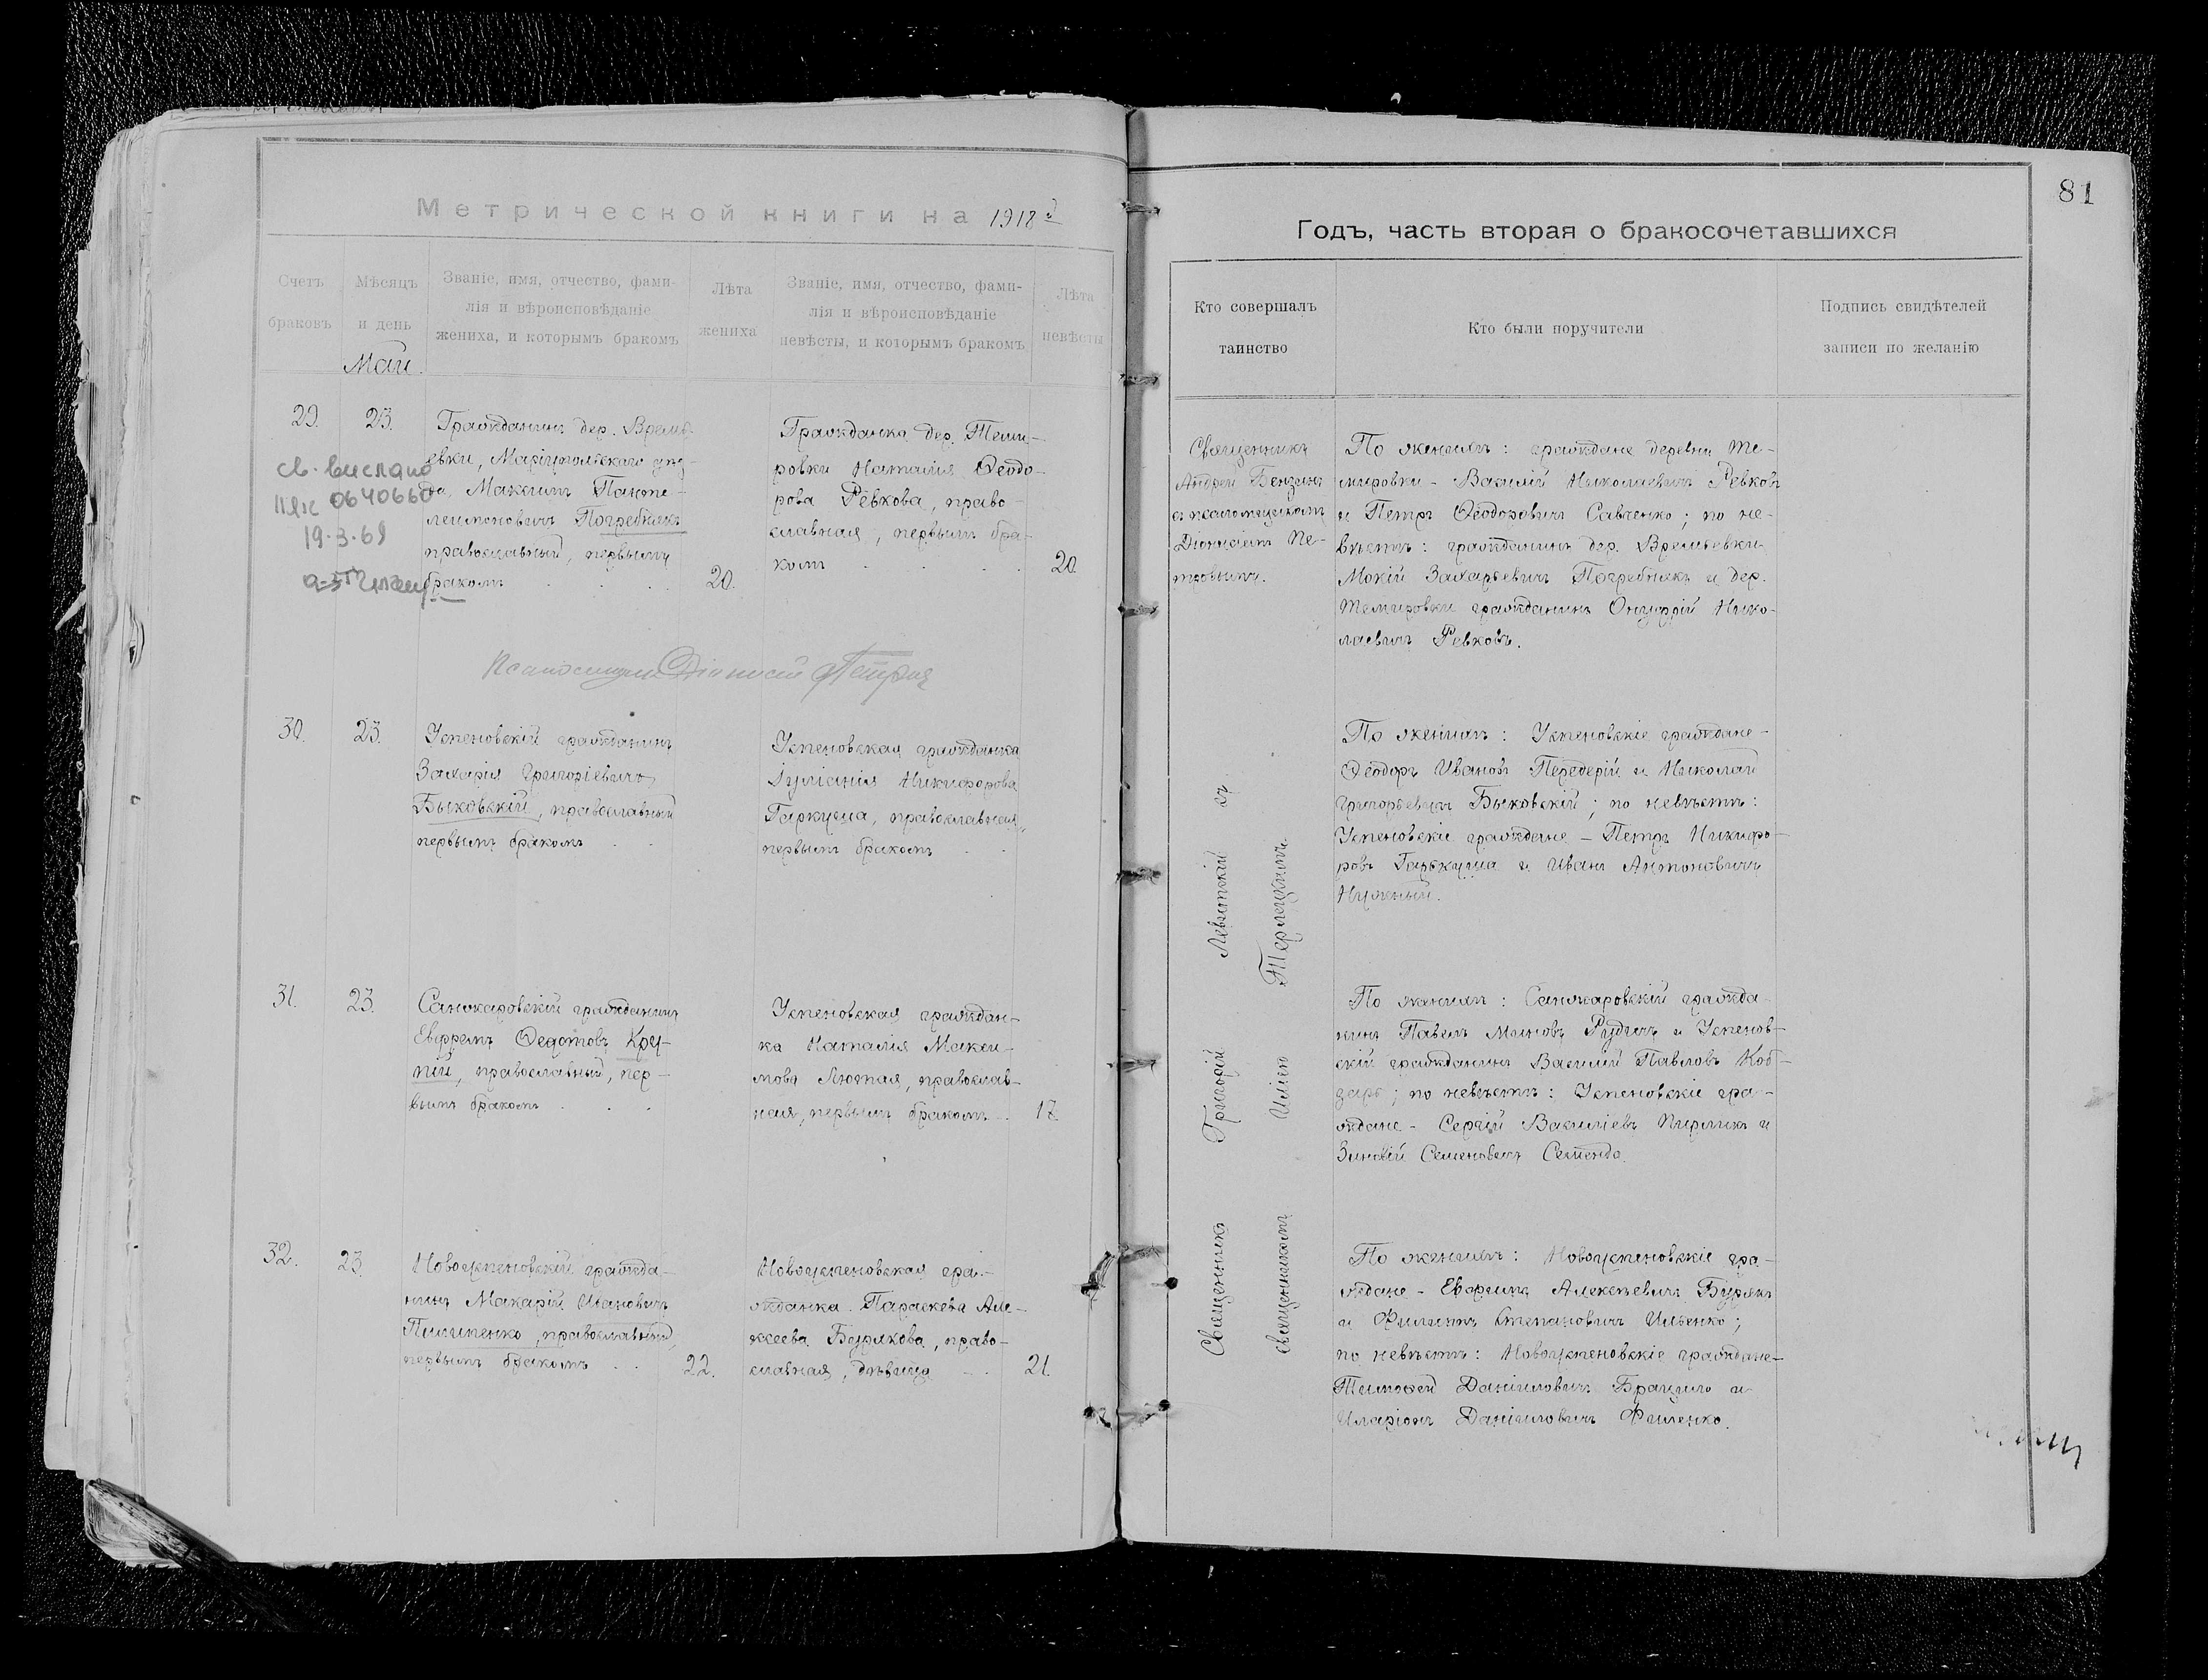 81
Метрической книги на 1918 й
Годъ, часть вторая о бракосочетавшихся
Счетъ
браковъ
Мѣсяцъ
и день
Май.
Званіе, имя, отчество, фами-
лія и вѣроисповѣданіе
жениха, и которымъ бракомъ
Лѣта
жениха
Званіе, имя, отчество, фами-
лія и вѣроисповѣданіе
невѣсты, и которымъ бракомъ
Лѣта
невѣсты
Кто совершалъ
таинство
Кто были поручители
Подпись свидѣтелей
записи по желанію
29.
23.
св. выслано
0640660
19.3.68
Гражданинъ дер. Времь-
евки, Маріупольскаго уѣз-
да, Максимъ Панте-
леимоновичъ Погребнякъ
православный, первымъ
бракомъ
20.
Гражданка дер. Теми-
ровки Наталія Ѳеодо-
рова Ревкова, право-
славная, первымъ бра-
комъ
20.
Священникъ
Андрей Бензинъ
съ псаломщикомъ
Діонисіемъ Пе-
тровымъ.
По женихѣ: граждане деревни Те-
мировки - Василій Николаевичъ Ревковъ
и Петръ Ѳеодоровичъ Савченко; по не-
вѣстѣ: гражданинъ дер. Времьевки
Мокій Захарьевичъ Погребнякъ и дер.
Темировки гражданинъ Онуфрій Нико-
лаевичъ Ревковъ.
Псаломщикъ Діонисій Петровъ
30.
23.
Успеновскій гражданинъ
Захарія Григоріевичъ
Быковскій, православный
первымъ бракомъ
Успеновская гражданка
Іуліанія Никифорова
Гаркуша, православная,
первымъ бракомъ
По женихѣ: Успеновскіе граждане -
Ѳеодоръ Ивановъ Передерій и Николай
Григорьевичъ Быковскій; по невѣстѣ:
Успеновскіе граждане - Петръ Никифо-
ровъ Гарькуша и Иванъ Антоновичъ
Нужный.
31.
23.
Санжаровскій гражданинъ
Ефремъ Ѳедотовъ Кру-
пій, православный, пер-
вымъ бракомъ
Успеновская граждан-
ка Наталія Макси-
мова Лютая, православ-
ная, первымъ бракомъ
17
По женихѣ: Санжаровскій гражда-
нинъ Павелъ Рудичъ и Успенов-
скій гражданинъ Василій Павловъ Коб-
зарь; по невѣстѣ: Успеновскіе гра-
ждане - Сергій Василіевъ и
Зиновій Семеновичъ
32.
23.
Новоуспеновскій гражда-
нинъ Макарій Ивановичъ
Пилипенко, православный,
первымъ бракомъ
22.
Новоуспеновская гра-
жданка Параскева Але-
ксеева Бурякова, право-
славная, дѣвица
21.
По женихѣ: Новоуспеновскіе гра-
ждане - Ефимъ Алексѣевичъ Бурякъ
и Филиппъ Степановичъ Ильенко;
по невѣстѣ: Новоуспеновскіе граждане-
Тимоѳей Даніиловичъ и
Иларіонъ Даніиловичъ Филенко.
Священникъ Григорій Левитскій съ
священникомъ Иліею Терлецкимъ